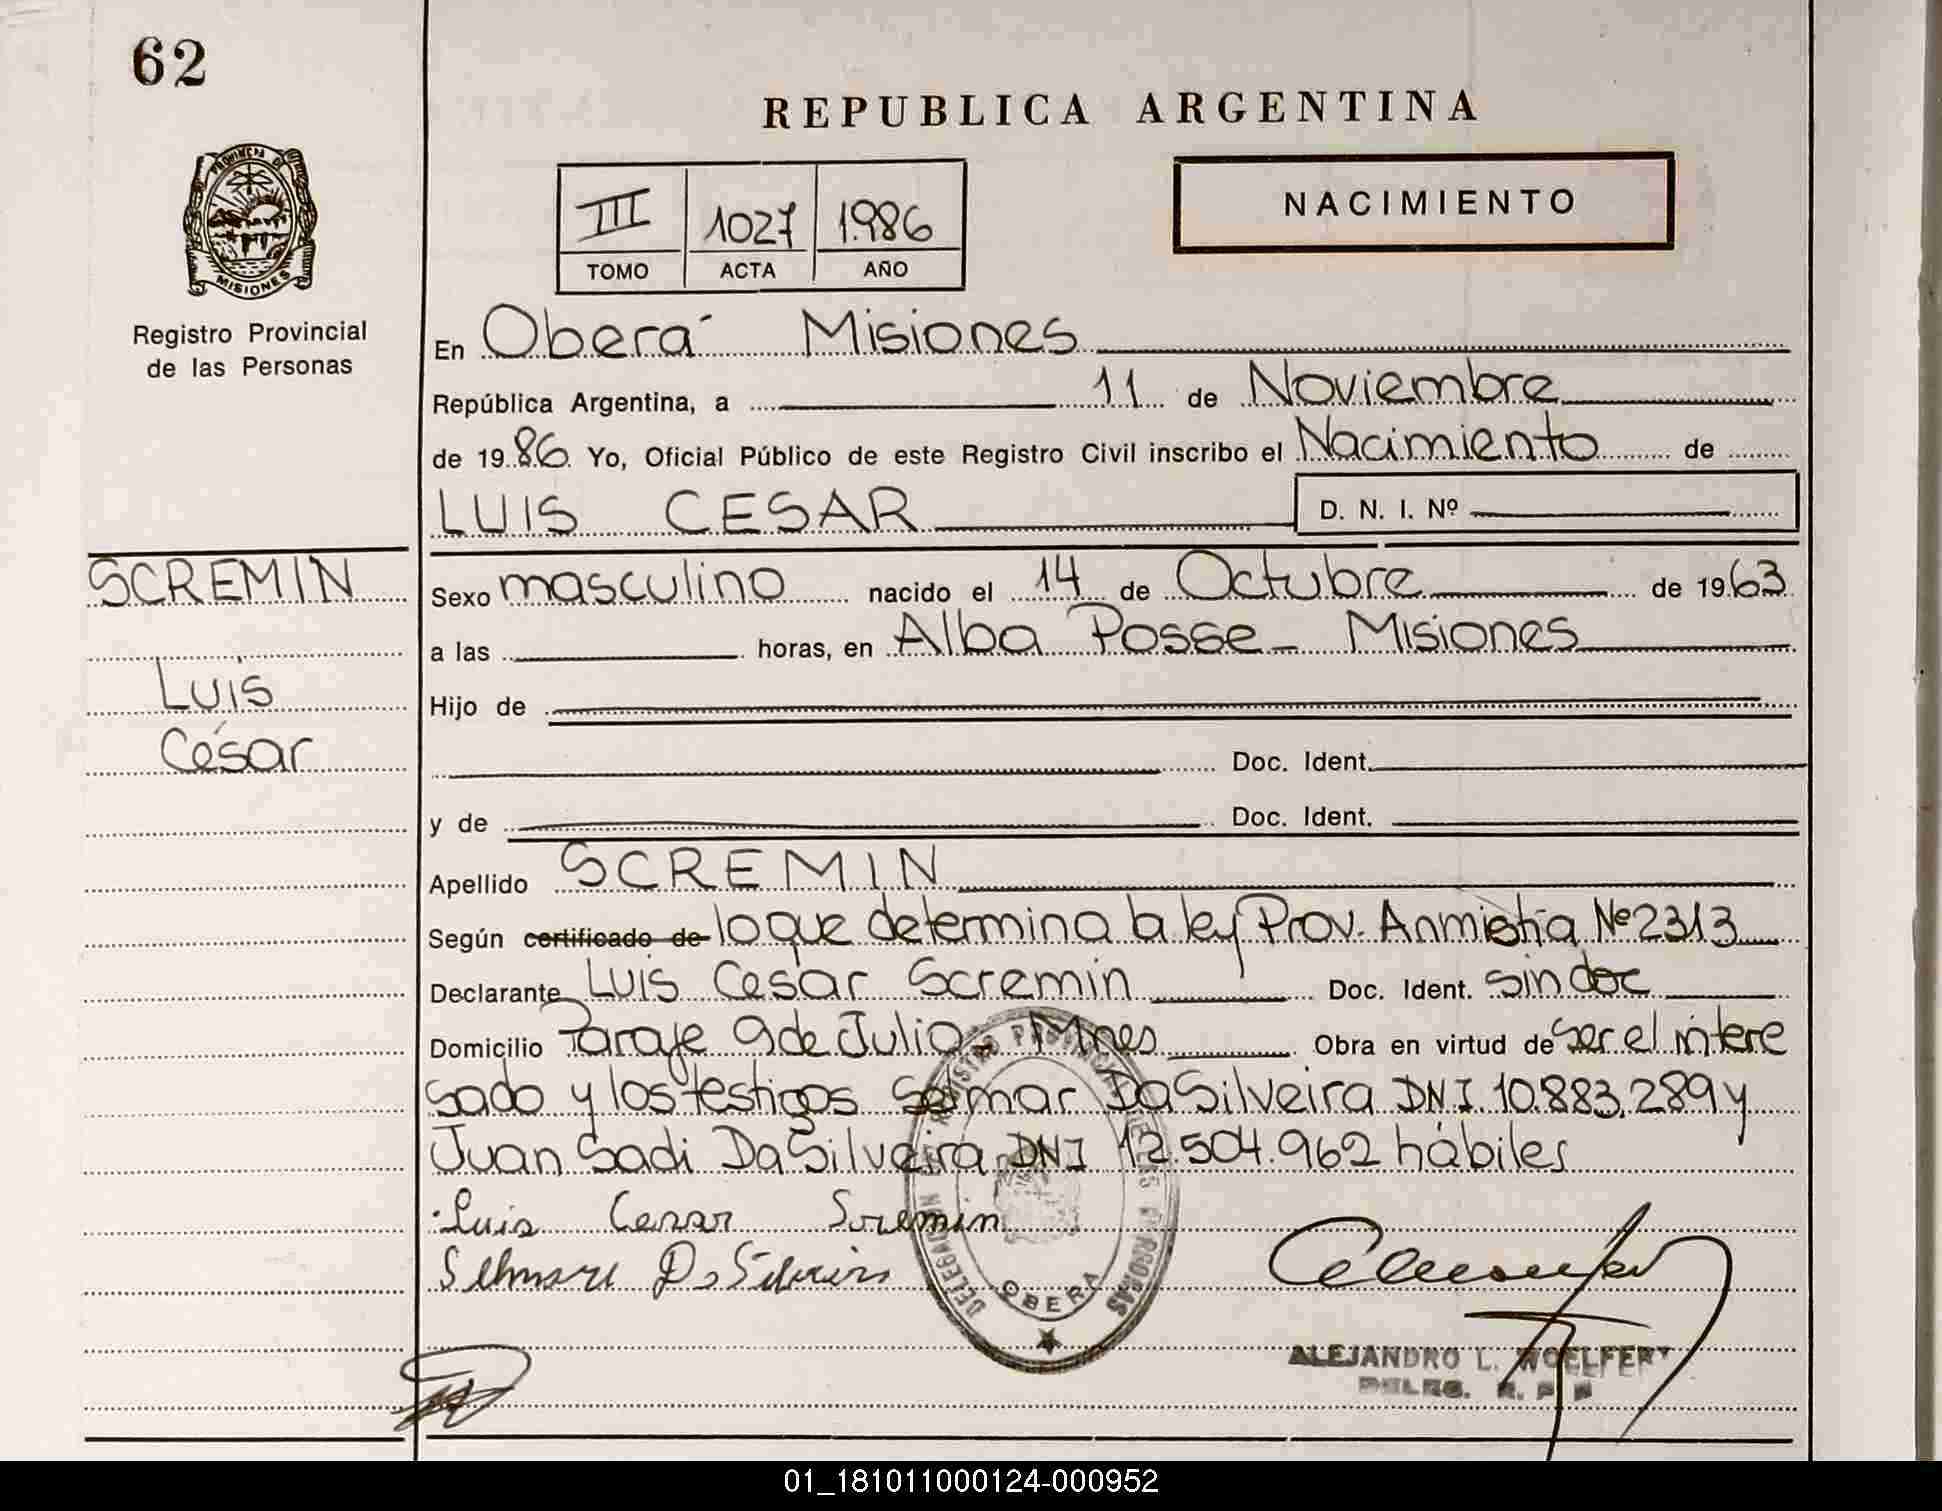 62
REPUBLICA ARGENTINA
PROVINCIA DE
MISIONES
Registro Provincial
de las Personas
III 1027 1.986
TOMO ACTA AÑO
NACIMIENTO
En Oberá Misiones
República Argentina, a 11 de Noviembre
de 19 86 Yo, Oficial Público de este Registro Civil inscribo el Nacimiento de
LUIS CESAR D. N. I. Nº
SCREMIN
Luis
César
Sexo masculino nacido el 14 de Octubre de 19 63
a las horas, en Alba Posse - Misiones
Hijo de
Doc. Ident.
y de Doc. Ident.
Apellido SCREMIN
Según certificado de lo que determina la ley Prov. Anmistia Nº 2313
Declarante Luis Cesar Scremin Doc. Ident. sin doc
Domicilio Paraje 9 de Julio - Mnes Obra en virtud de ser el intere
sado y los testigos Selmar Da Silveira DNI 10.883.289 y
Juan Sadi Da Silveira DNI 12.504.962 hábiles
Luis Cesar Scremin
Da Silveira
OBERA
ALEJANDRO L. WOELFERT
DELEG. R. P.
01_181011000124-000952